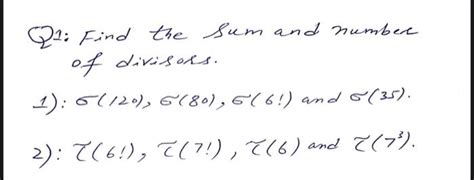 Q1: Find the sum and number
of divisors.
1): σ(120), σ(80), σ(6!) and σ(35).
2): τ(6!), τ(7!), τ(6) and τ(7³).